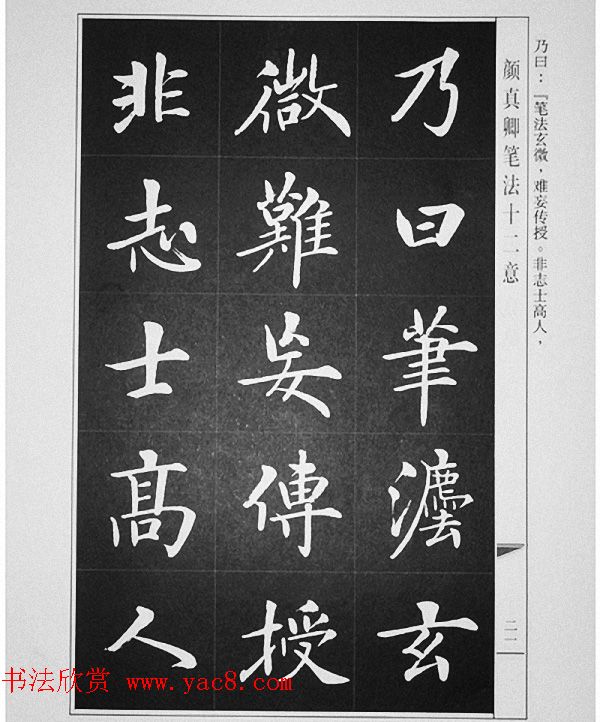 乃曰：『笔法玄微，难妄传授。非志士高人，
颜真卿笔法十二意
二一
乃曰筆灋玄
微難妄傳授
非志士髙人
书法欣赏 www.yac8.com